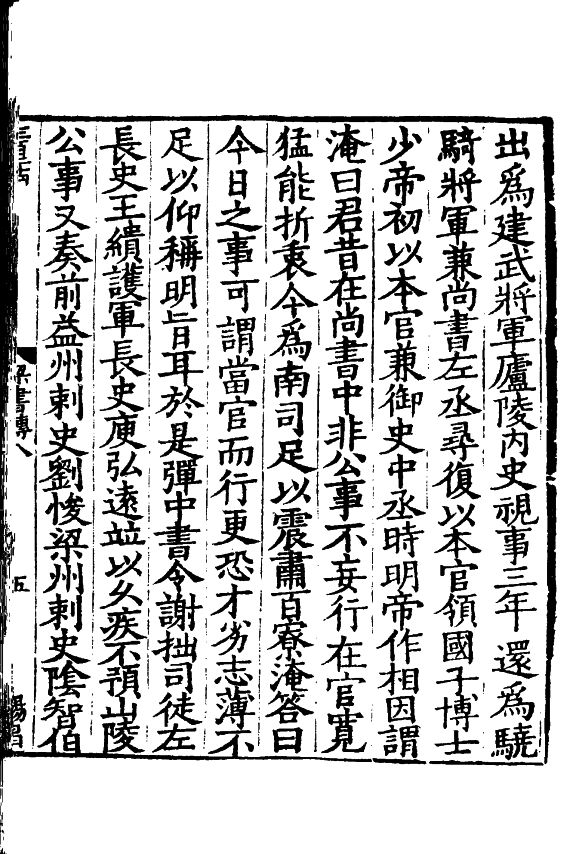 出爲建武將軍廬陵内史視事三年還爲驍
騎將軍兼尚書左丞尋復以本官領國子博士
少帝初以本官兼御史中丞時明帝作相因謂
淹曰君昔在尚書中非公事不妄行在官寛
猛能折衷今爲南司足以震肅百寮淹荅曰
今日之事可謂當官而行更恐才劣志薄不
足以仰稱明旨耳於是彈中書令謝朏司徒左
長史王繢護軍長史庾弘遠並以久疾不預山陵
公事又奏前益州刺史劉悛梁州刺史陰智伯
梁書傳八
五